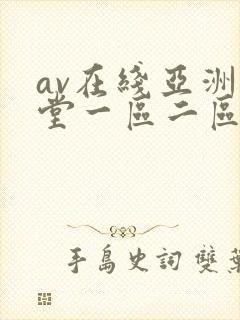 av在綫亞洲
堂一區二區
手島史詞 雙葉